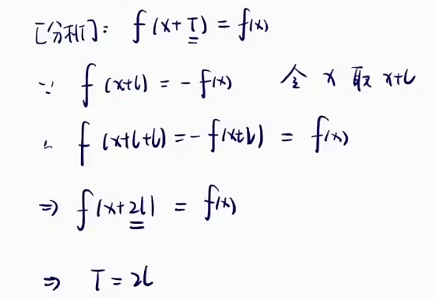 [分析]: f(x+T) = f(x)
∵ f(x+l) = -f(x) 令 x 取 x+l
∴ f(x+l+l) = -f(x+l) = f(x)
⇒ f(x+2l) = f(x)
⇒ T = 2l